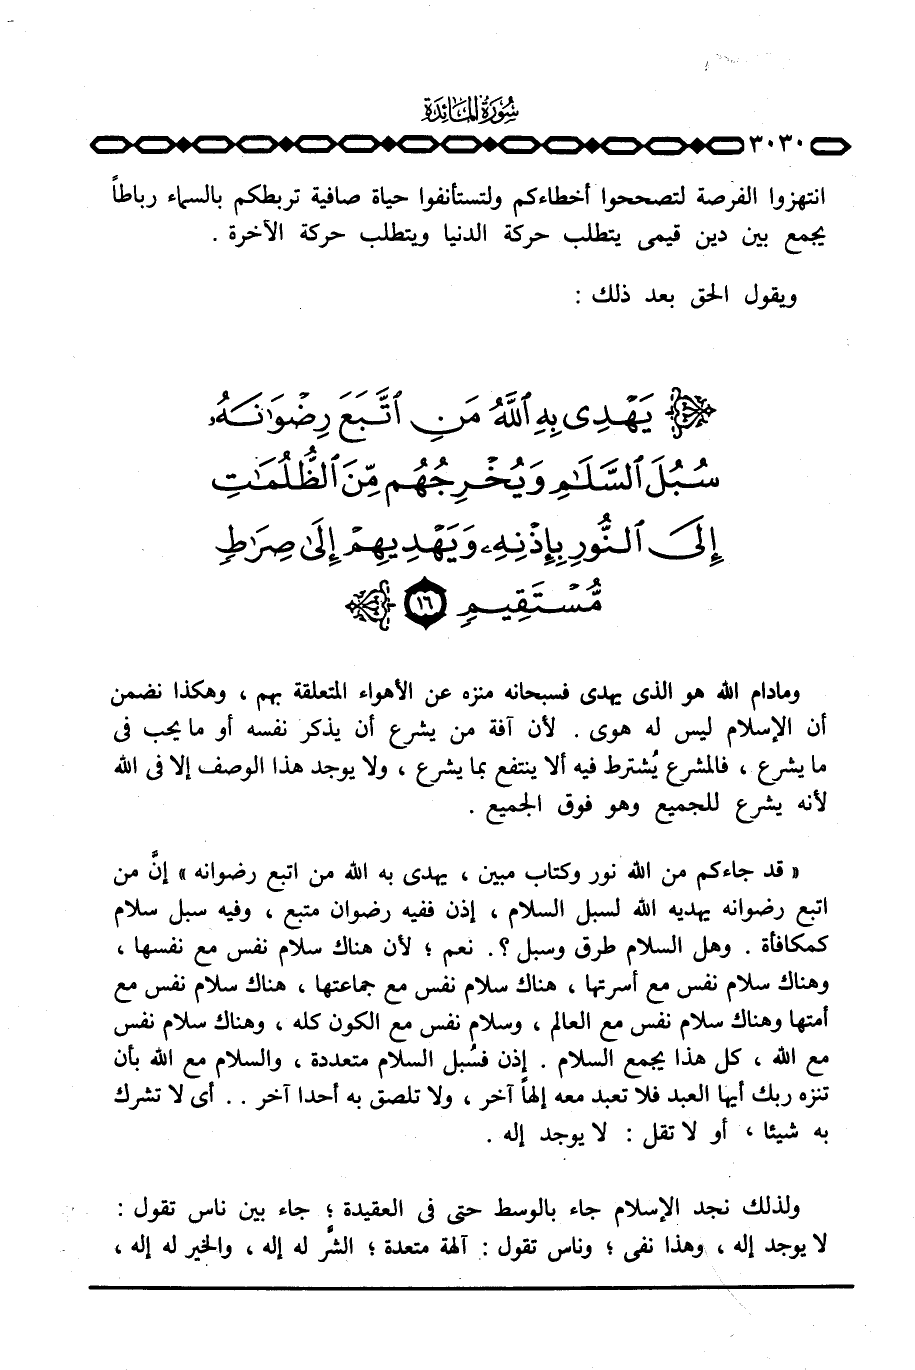 سُورَةُ المَائِدَة
٣٠٣٠
انتهزوا الفرصة لتصححوا أخطاءكم ولتستأنفوا حياة صافية تربطكم بالسماء رباطاً
يجمع بين دين قيمى يتطلب حركة الدنيا ويتطلب حركة الآخرة .
ويقول الحق بعد ذلك :
﴿ يَهْدِى بِهِ ٱللَّهُ مَنِ ٱتَّبَعَ رِضْوَٰنَهُۥ
سُبُلَ ٱلسَّلَٰمِ وَيُخْرِجُهُم مِّنَ ٱلظُّلُمَٰتِ
إِلَى ٱلنُّورِ بِإِذْنِهِۦ وَيَهْدِيهِمْ إِلَىٰ صِرَٰطٍ
مُّسْتَقِيمٍ ١٦ ﴾
ومادام الله هو الذى يهدى فسبحانه منزه عن الأهواء المتعلقة بهم ، وهكذا نضمن
أن الإسلام ليس له هوى . لأن آفة من يشرع أن يذكر نفسه أو ما يحب فى
ما يشرع ، فالمشرع يُشترط فيه ألا ينتفع بما يشرع ، ولا يوجد هذا الوصف إلا فى الله
لأنه يشرع للجميع وهو فوق الجميع .
« قد جاءكم من الله نور وكتاب مبين ، يهدى به الله من اتبع رضوانه » إنَّ من
اتبع رضوانه يهديه الله لسبل السلام ، إذن ففيه رضوان متبع ، وفيه سبل سلام
كمكافأة . وهل السلام طرق وسبل ؟. نعم ؛ لأن هناك سلام نفس مع نفسها ،
وهناك سلام نفس مع أسرتها ، هناك سلام نفس مع جماعتها ، هناك سلام نفس مع
أمتها وهناك سلام نفس مع العالم ، وسلام نفس مع الكون كله ، وهناك سلام نفس
مع الله ، كل هذا يجمع السلام . إذن فسُبل السلام متعددة ، والسلام مع الله بأن
تنزه ربك أيها العبد فلا تعبد معه إلهاً آخر ، ولا تلصق به أحدا آخر . . أى لا تشرك
به شيئا ، أو لا تقل : لا يوجد إله .
ولذلك نجد الإسلام جاء بالوسط حتى فى العقيدة ؛ جاء بين ناس تقول :
لا يوجد إله ، وهذا نفى ؛ وناس تقول : آلهة متعدة ؛ الشَّر له إله ، والخير له إله ،